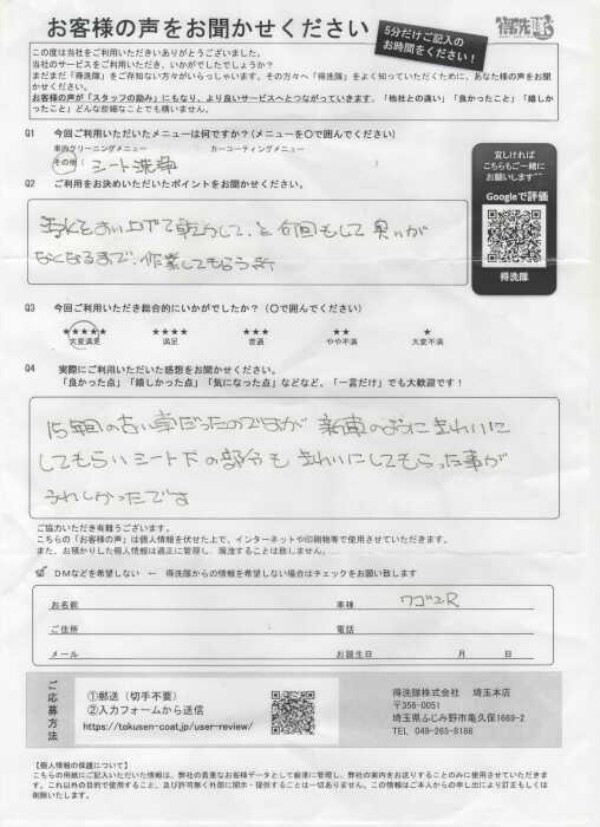 お客様の声をお聞かせください
5分だけご記入の
お時間をください!
得洗隊
この度は当社をご利用いただきいありがとうございました。
当社のサービスをご利用いただき、いかがでしたでしょうか?
まだまだ「得洗隊」をご存知ない方々がいらっしゃいます。その方々へ「得洗隊」をよく知っていただくために、あなた様の声をお聞
かせください。
お客様の声が「スタッフの励み」にもなり、より良いサービスへとつながっていきます。「他社との違い」「良かったこと」「嬉しかっ
たこと」どんな些細なことでも構いません。
Q1 今回ご利用いただいたメニューは何ですか?(メニューを〇で囲んでください)
車内クリーニングメニュー カーコーティングメニュー
その他( シート洗浄 )
Q2 ご利用をお決めいただいたポイントをお聞かせください。
汚水をすい上げて乾かして、と何回もして臭いが
なくなるまで、作業してもらう所
宜しければ
こちらもご一緒に
お願いします^^
Googleで評価
得洗隊
Q3 今回ご利用いただき総合的にいかがでしたか?(〇で囲んでください)
★★★★★ ★★★★ ★★★ ★★ ★
大変満足 満足 普通 やや不満 大変不満
Q4 実際にご利用いただいた感想をお聞かせください。
「良かった点」「嬉しかった点」「気になった点」などなど、「一言だけ」でも大歓迎です!
15年間の古い車だったのですが 新車のように きれいに
してもらい シート下の部分も きれいにしてもらった事が
うれしかったです
ご協力いただき有難うございます。
こちらの「お客様の声」は個人情報を伏せた上で、インターネットや印刷物等で使用させていただきます。
また、お預かりした個人情報は適正に管理し、漏洩することは致しません。
DMなどを希望しない ← 得洗隊からの情報を希望しない場合はチェックをお願い致します
お名前 車種 ワゴンR
ご住所 電話
メール お誕生日 月 日
ご応募方法
①郵送(切手不要)
②入力フォームから送信
https://tokusen-coat.jp/user-review/
得洗隊株式会社 埼玉本店
〒356-0051
埼玉県ふじみ野市亀久保1669-2
TEL 049-265-8186
【個人情報の保護について】
こちらの用紙にご記入いただいた情報は、弊社の貴重なお客様データとして厳重に管理し、弊社の案内をお送りすることのみに使用させていただきま
す。これ以外の目的で使用すること、及び許可無く外部に開示・提供することは一切ありません。この情報はご本人からの申し出により訂正もしくは
削除いたします。